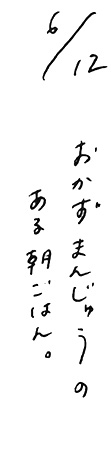 6/12
おかずまんじゅうの
ある朝ごはん。